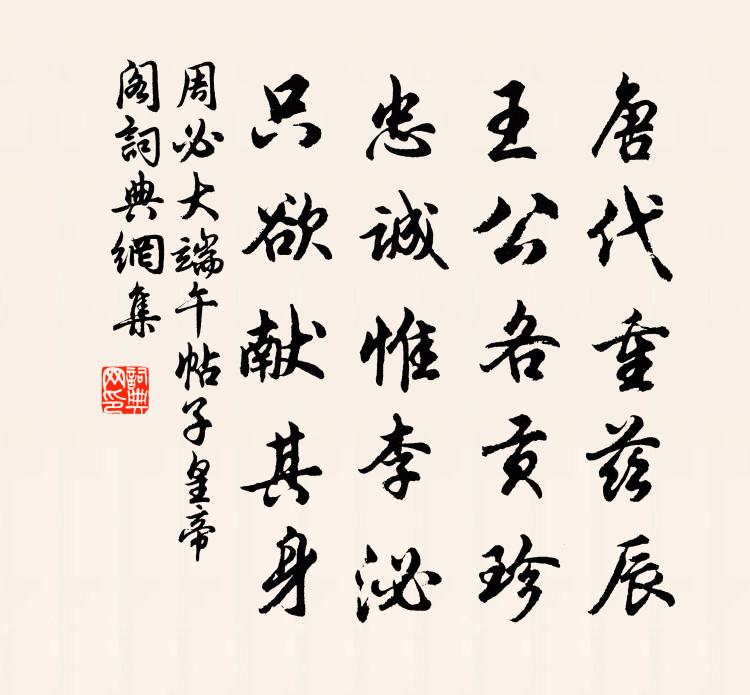 唐代重茲辰
王公各贡珍
忠诚惟李泌
只欲献其身
周必大端午帖子皇帝
阁詞典網集
詞典网印